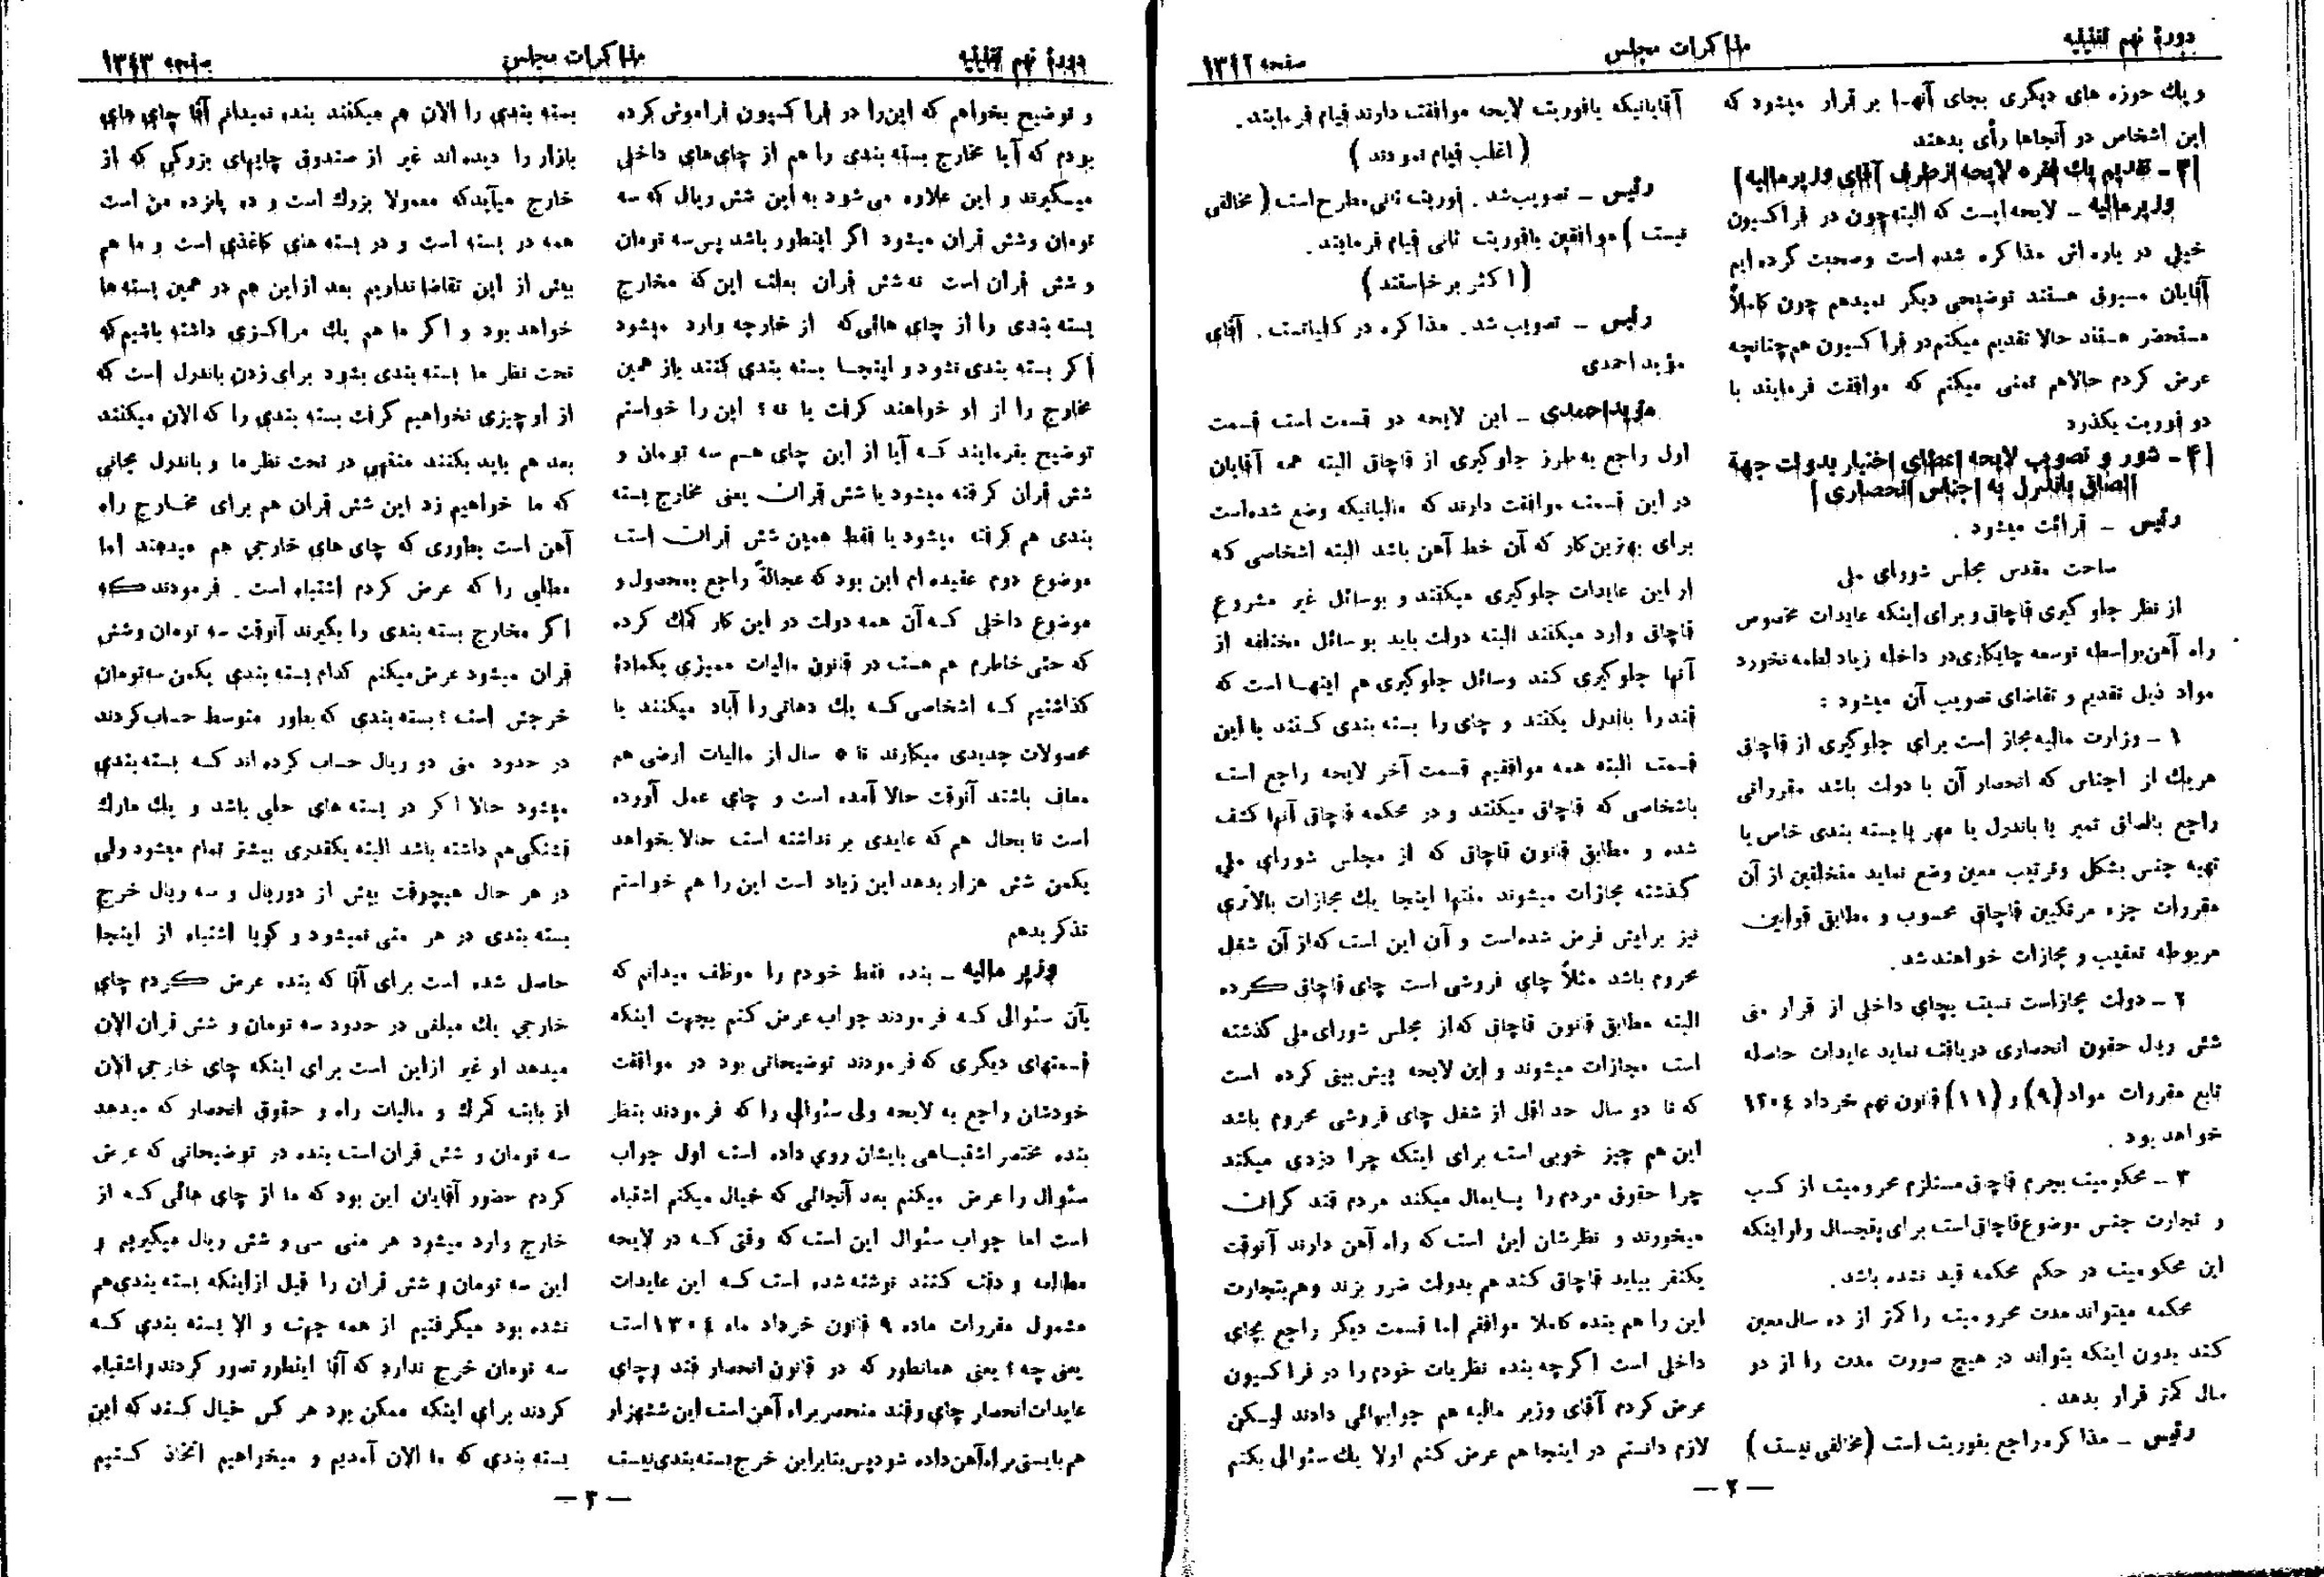 دورهٔ نهم تقنینیه
مذاکرات مجلس
صفحه ۱۳۴۲
و یك حوزه های دیگری بجای آنها بر قرار میشود که
این اشخاص در آنجاها رأی بدهند
[۳ - تقدیم یك فقره لایحه ازطرف آقای وزیرمالیه]
وزیرمالیه - لایحه ایست که البته چون در فراکسیون
خیلی در باره اش مذاکره شده است وصحبت کرده ایم
آقایان مسبوق هستند توضیحی دیگر نمیدهم چون کاملاً
مستحضر هستند حالا تقدیم میکنم در فراکسیون هم چنانچه
عرض کردم حالاهم تمنی میکنم که موافقت فرمایند با
دو فوریت بگذرد
[۴ - شور و تصویب لایحه اعطای اختیار بدولت جهة
الصاق باندرل به اجناس انحصاری]
رئیس - قرائت میشود .
ساحت مقدس مجلس شورای ملی
از نظر جلوگیری قاچاق و برای اینکه عایدات مخصوص
راه آهن بواسطه توسعه چایکاری در داخله زیاد لطمه نخورد
مواد ذیل تقدیم و تقاضای تصویب آن میشود :
۱ - وزارت مالیه مجاز است برای جلوگیری از قاچاق
هریك از اجناس که انحصار آن با دولت باشد مقرراتی
راجع بالصاق تمبر یا باندرل یا مهر یا بسته بندی خاص یا
تهیه جنس بشکل وترتیب معین وضع نماید متخلفین از آن
مقررات جزء مرتکبین قاچاق محسوب و مطابق قوانین
مربوطه تعقیب و مجازات خواهند شد.
۲ - دولت مجازاست نسبت بچای داخلی از قرار منی
شش ریال حقوق انحصاری دریافت نماید عایدات حاصله
تابع مقررات مواد (۹) و (۱۱) قانون نهم خرداد ۱۳۰۴
خواهد بود .
۳ - محکومیت بجرم قاچاق مستلزم محرومیت از کسب
و تجارت جنس موضوع قاچاق است برای پنجسال ولو اینکه
این محکومیت در حکم محکمه قید نشده باشد.
محکمه میتواند مدت محرومیت را کمتر از ده سال معین
کند بدون اینکه بتواند در هیچ صورت مدت را از دو
سال کمتر قرار بدهد .
رئیس - مذاکره راجع بفوریت است (مخالفی نیست)
آقایانیکه بافوریت لایحه موافقت دارند قیام فرمایند.
(اغلب قیام نمودند)
رئیس - تصویب شد . فوریت ثانی مطرح است (مخالفی
نیست) موافقین بافوریت ثانی قیام فرمایند.
(اکثر برخاستند)
رئیس - تصویب شد. مذاکره در کلیاتست. آقای
مؤید احمدی
مؤیداحمدی - این لایحه دو قسمت است قسمت
اول راجع به طرز جلوگیری از قاچاق البته همه آقایان
در این قسمت موافقت دارند که مالیاتیکه وضع شده‌است
برای بهترین کار که آن خط آهن باشد البته اشخاصی که
از این عایدات جلوگیری میکنند و بوسائل غیر مشروع
قاچاق وارد میکنند البته دولت باید بوسائل مختلفه از
آنها جلوگیری کند وسائل جلوگیری هم اینهـا است که
قند را باندرل بکنند و چای را بسته بندی کـنند با این
قسمت البته همه موافقیم قسمت آخر لایحه راجع است
باشخاصی که قاچاق میکنند و در محکمه قاچاق آنها کشف
شده و مطابق قانون قاچاق که از مجلس شورای ملی
گذشته مجازات میشوند منتها اینجا یك مجازات بالاتری
نیز برایش فرض شده‌است و آن این است که‌از آن شغل
محروم باشد مثلاً چای فروشی است چای قاچاق کرده
البته مطابق قانون قاچاق که‌از مجلس شورای ملی گذشته
است مجازات میشوند و این لایحه پیش بینی کرده است
که تا دو سال حد اقل از شغل چای فروشی محروم باشد
این هم چیز خوبی است برای اینکه چرا دزدی میکند
چرا حقوق مردم را پـایمال میکند مردم قند گران
میخورند و نظرشان این است که راه آهن دارند آنوقت
یکنفر بیاید قاچاق کند هم بدولت ضرر بزند وهم‌بتجارت
این را هم بنده کاملا موافقم اما قسمت دیگر راجع بچای
داخلی است اگرچه بنده نظریات خودم را در فراکسیون
عرض کردم آقای وزیر مالیه هم جوابهائی دادند لیـکن
لازم دانستم در اینجا هم عرض کنم اولا یك سئوالی بکنم
- ۲ -
دورهٔ نهم تقنینیه
مذاکرات مجلس
صفحه ۱۳۴۳
و توضیح بخواهم که این‌را در فراکسیون فراموش کرده
بودم که آیا مخارج بسته بندی را هم از چای‌های داخلی
میـگیرند و این علاوه می شود به این شش ریال که سه
تومان وشش قران میشود اگر اینطور باشد پس سه تومان
و شش قران است نه شش قران بعلت این که مخارج
بسته بندی را از چای هائی‌که از خارجه وارد میشود
اگر بسته بندی نشود و اینجـا بسته بندی کنند باز همین
مخارج را از او خواهند گرفت یا نه؟ این را خواستم
توضیح بفرمایند کـه آیا از این چای هـم سه تومان و
شش قران گرفته میشود یا شش قران یعنی مخارج بسته
بندی هم گرفته میشود یا فقط همین شش قران است
موضوع دوم عقیده ام این بود که عجالةً راجع بمحصول و
موضوع داخلی کـه آن همه دولت در این کار کمك کرده
که حتی خاطرم هم هست در قانون مالیات ممیزی یکمادهٔ
گذاشتیم کـه اشخاصی کـه یك دهاتی را آباد میکنند یا
محصولات جدیدی میکارند تا ۵ سال از مالیات ارضی هم
معاف باشند آنوقت حالا آمده است و چای عمل آورده
است تا بحال هم که عایدی بر نداشته است حالا بخواهد
یکمن شش هزار بدهد این زیاد است این را هم خواستم
تذکر بدهم
وزیر مالیه - بنده فقط خودم را موظف میدانم که
بآن سئوالی کـه فرمودند جواب عرض کنم بجهت اینکه
قسمتهای دیگری که فرمودند توضیحاتی بود در موافقت
خودشان راجع به لایحه ولی سئوالی را که فرمودند بنظر
بنده مختصر اشتبـاهی بایشان روی داده است اول جواب
سئوال را عرض میکنم بعد آنجائی که خیال میکنم اشتباه
است اما جواب سئوال این است که وقتی کـه در لایحه
مطالعه و دقت کنند نوشته شده است کـه این عایدات
مشمول مقررات ماده ۹ قانون خرداد ماه ۱۳۰۴ است
یعنی چه؟ یعنی همانطور که در قانون انحصار قند وچای
عایدات انحصار چای وقند منحصر براه آهن است این ششهزار
هم بایستی براه‌آهن داده شود پس بنابراین خرج بسته بندی نیست
بسته بندی را الان هم میکنند بنده نمیدانم آقا چای های
بازار را دیده اند غیر از صندوق چایهای بزرگی که از
خارج میآیدکه معمولا بزرك است و ده پانزده من است
همه در بسته است و در بسته های کاغذی است و ما هم
بیش از این تقاضا نداریم بعد ازاین هم در همین بسته‌ها
خواهد بود و اگر ما هم یك مراکـزی داشته باشیم که
تحت نظر ما بسته بندی بشود برای زدن باندرل است که
از او چیزی نخواهیم گرفت بسته بندی را که الان میکنند
بعد هم باید بکنند منتهی در تحت نظر ما و باندرل مجانی
که ما خواهیم زد این شش قران هم برای مخـارج راه
آهن است بطوری که چای های خارجی هم میدهند اما
مطلبی را که عرض کردم اشتباه است . فرمودند که
اگر مخارج بسته بندی را بگیرند آنوقت سه تومان وشش
قران میشود عرض میکنم کدام بسته بندی یکمن سه‌تومان
خرجش است؟ بسته بندی که بطور متوسط حساب کردند
در حدود منی دو ریال حساب کرده اند کـه بسته بندی
میشود حالا اگر در بسته های حلبی باشد و یك مارك
قشنگی هم داشته باشد البته یکقدری بیشتر تمام میشود ولی
در هر حال هیچوقت بیش از دوریال و سه ریال خرج
بسته بندی در هر منی نمیشود و گویا اشتباه از اینجا
حاصل شده است برای آقا که بنده عرض کردم چای
خارجی یك مبلغی در حدود سه تومان و شش قران الان
میدهد او غیر ازاین است برای اینکه چای خارجی الان
از بابت گمرك و مالیات راه و حقوق انحصار که میدهد
سه تومان و شش قران است بنده در توضیحاتی که عرض
کردم حضور آقایان این بود که ما از چای هائی کـه از
خارج وارد میشود هر منی سی و شش ریال میگیریم و
این سه تومان و شش قران را قبل ازاینکه بسته بندی هم
نشده بود میگرفتیم از همه جهت و الا بسته بندی کـه
سه تومان خرج ندارد که آقا اینطور تصور کردند و اشتباه
کردند برای اینکه ممکن بود هر کس خیال کـند که این
بسته بندی که ما الان آمدیم و میخواهیم اتخاذ کـنیم
- ۳ -